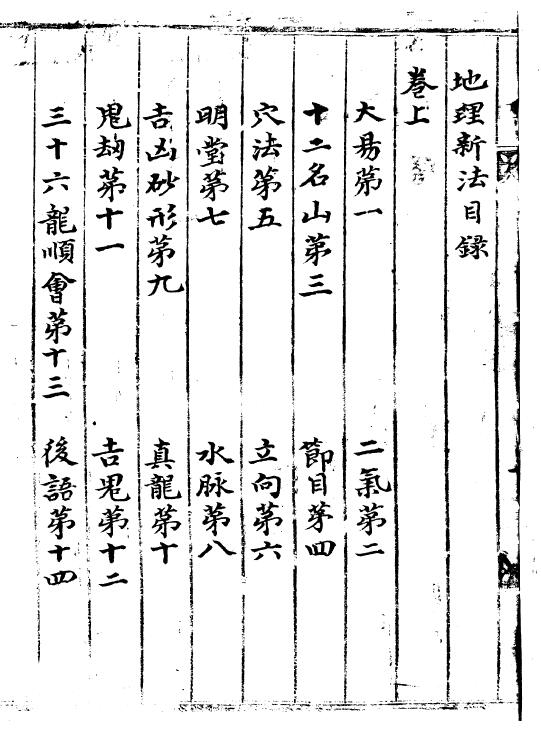 地理新法目録
卷上
大易第一　二氣第二
十二名山第三　節目第四
穴法第五　立向第六
明堂第七　水脉第八
吉凶砂形第九　真龍第十
鬼劫第十一　吉鬼第十二
三十六龍順會第十三　後語第十四